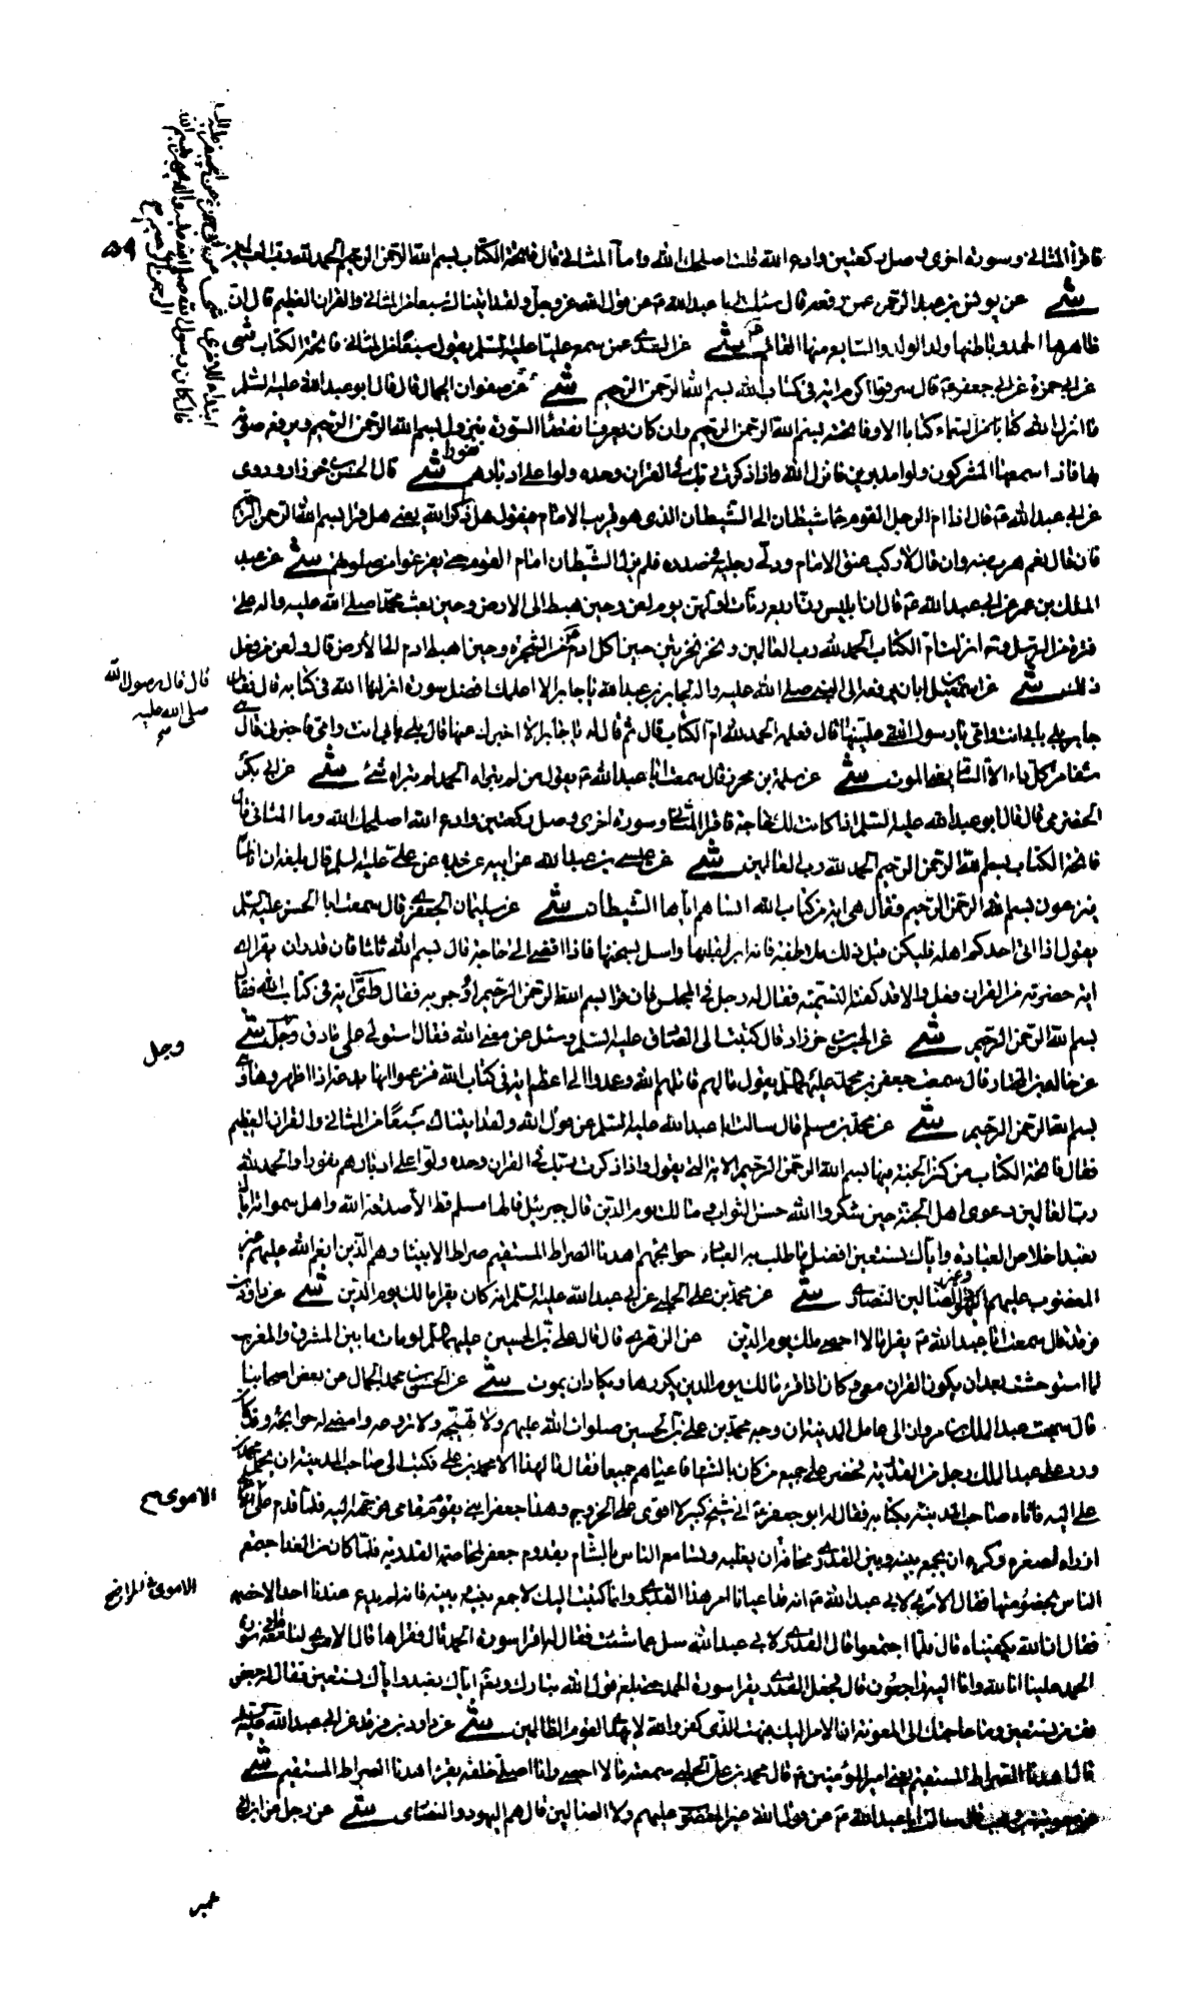 فاقرأ المثاني وسورة اخرى وصل ركعتين وادع الله قلت اصلحك الله وما المثاني قال فاتحة الكتاب بسم الله الرحمن الرحيم الحمد لله رب العالمين
شى عن يونس بن عبد الرحمن عمن رفعه قال سئلت ابا عبد الله ع عن قول الله عز وجل ولقد اتيناك سبعا من المثاني والقران العظيم قال ان
ظاهرها الحمد وباطنها ولد الولد والسابع منها القائم ع شى عن السدي عمن سمع عليا عليه السلم يقول سبعا من المثاني فاتحة الكتاب شى
عن ابي حمزة عن ابي جعفر ع قال سرقوا اكرم اية في كتاب الله بسم الله الرحمن الرحيم شى عن صفوان الجمال قال قال ابو عبد الله عليه السلم
ما انزل الله كتابا من السماء كتابا الا وفاتحته بسم الله الرحمن الرحيم وان كان يعرف انقضاء السورة بنزول بسم الله الرحمن الرحيم ويرفع صوته
بها فاذا سمعها المشركون ولوا مدبرين فانزل الله واذا ذكرت ربك في القران وحده ولوا على ادبارهم نفورا شى قال الحسن بن خرزاد وروى
عن ابي عبد الله ع قال اذا ام الرجل القوم جاء شيطان الى الشيطان الذي هو قريب الامام فيقول هل ذكر الله يعني هل قرا بسم الله الرحمن الرحيم
فان قال نعم هرب منه وان قال لا ركب عنق الامام ودلى رجليه في صدره فلم يزل الشيطان امام القوم حتى يفرغوا من صلوتهم شى عن عبد
الملك بن عمر عن ابي عبد الله ع قال ان ابليس رن اربع رنات اولهن يوم لعن وحين هبط الى الارض وحين بعث محمد صلى الله عليه واله على
فترة من الرسل وحين انزلت ام الكتاب الحمد لله رب العالمين ونخر نخرتين حين اكل ادم ع من الشجرة وحين اهبط ادم الى الارض قال ولعن من فعل
ذلك شى عن اسمعيل بن ابان يرفعه الى النبي صلى الله عليه واله لجابر بن عبد الله يا جابر الا اعلمك افضل سورة انزلها الله في كتابه قال فقال
جابر بلى بابي انت وامي يا رسول الله علمنيها قال فعلمه الحمد لله ام الكتاب قال ثم قال له يا جابر الا اخبرك عنها قال بلى بابي انت وامي فاخبرني قال هي
شفاء من كل داء الا السام يعنى الموت شى عن سلمة بن محرز قال سمعت ابا عبد الله ع يقول من لم يبرأه الحمد لم يبرأه شئ شى عن ابي بكر
الحضرمي قال قال ابو عبد الله عليه السلم اذا كانت لك حاجة فاقرا المثاني وسورة اخرى وصل ركعتين وادع الله قلت اصلحك الله وما المثاني قال
فاتحة الكتاب بسم الله الرحمن الرحيم الحمد لله رب العالمين شى عن عيسى بن عبد الله عن ابيه عن جده عن علي عليه السلم قال بلغه ان اناسا
ينزعون بسم الله الرحمن الرحيم فقال هي اية من كتاب الله انساهم اياها الشيطان شى عن سليمان الجعفري قال سمعت ابا الحسن عليه السلم
يقول اذا اتى احدكم اهله فليكن قبل ذلك ملاطفة فانه ابر لقلبها واسل لسخمتها فاذا افضى الى حاجته قال بسم الله ثلاثا فان قدر ان يقرا اي
اية حضرته من القران فعل والا قد كفته التسمية فقال له رجل في المجلس فان قرا بسم الله الرحمن الرحيم اوجر به فقال واي اية في كتاب الله فقال
بسم الله الرحمن الرحيم شى عن الحسن بن خرزاد قال كتبت الى الصادق عليه السلم وسئل عن معنى الله فقال استولى على ما دق وجل شى
عن خالد بن المختار قال سمعت جعفر بن محمد عليهما السلم يقول ما لهم قاتلهم الله عمدوا الى اعظم اية في كتاب الله فزعموا انها بدعة اذا اظهروها وهي
بسم الله الرحمن الرحيم شى عن محمد بن مسلم قال سالت ابا عبد الله عليه السلم عن قول الله ولقد اتيناك سبعا من المثاني والقران العظيم
فقال فاتحة الكتاب من كنز الجنة فيها بسم الله الرحمن الرحيم الاية التي يقول واذا ذكرت ربك في القران وحده ولوا على ادبارهم نفورا والحمد لله
رب العالمين دعوى اهل الجنة حين شكروا الله حسن الثواب ومالك يوم الدين قال جبرئيل ما قالها مسلم قط الا صدقه الله واهل سمواته اياك
نعبد اخلاص العبادة واياك نستعين افضل ما طلب به العباد حوائجهم اهدنا الصراط المستقيم صراط الانبياء وهم الذين انعم الله عليهم غير
المغضوب عليهم اليهود وغير الضالين النصارى شى عن محمد بن علي الحلبي عن ابي عبد الله عليه السلم انه كان يقرا مالك يوم الدين شى عن داود بن
فرقد قال سمعت ابا عبد الله ع يقرا ما لا احصي ملك يوم الدين عن الزهري قال قال علي بن الحسين عليهما السلم لو مات ما بين المشرق والمغرب
لما استوحشت بعد ان يكون القران معي وكان اذا قرا مالك يوم الدين يكررها ويكاد ان يموت شى عن الحسن بن محمد الجمال عن بعض اصحابنا
قال بعث عبد الملك بن مروان الى عامل المدينة ان وجه محمد بن علي بن الحسين صلوات الله عليهم ولا تهيجه ولا تروعه واقض له حوائجه وقد كان
ورد على عبد الملك رجل من القدرية فحضر جميع من كان بالشام فاعياهم جميعا فقال ما لهذا الا محمد بن علي فكتب الى صاحب المدينة ان يحمل محمد بن
علي اليه فاتاه صاحب المدينة بكتابه فقال له ابو جعفر ع اني شيخ كبير لا اقوى على الخروج وهذا جعفر ابني يقوم مقامي فوجهه اليه فلما قدم على الاموي
ازدراه لصغره وكره ان يجمع بينه وبين القدري مخافة ان يغلبه وتسامع الناس بالشام بقدوم جعفر لمخاصمة القدرية فلما كان من الغد اجتمع
الناس بخصومتهما فقال الاموي لابي عبد الله ع انه قد اعيانا امر هذا القدري وانما كتبت اليك لاجمع بينك وبينه فانه لم يدع عندنا احدا الا خصمه
فقال ان الله يكفيناه قال فلما اجتمعوا قال القدري لابي عبد الله سل عما شئت فقال له اقرا سورة الحمد قال فقراها قال الاموي وانا معه ما في سورة
الحمد علينا انا لله وانا اليه راجعون قال فجعل القدري يقرا سورة الحمد حتى بلغ قول الله تبارك وتعالى اياك نعبد واياك نستعين فقال له جعفر
قف من تستعين وما حاجتك الى المعونة ان الامر اليك فبهت الذي كفر والله لا يهدي القوم الظالمين شى عن داود بن فرقد عن ابي عبد الله عليه السلم
قال اهدنا الصراط المستقيم يعني امير المؤمنين ع قال محمد بن علي الحلبي سمعته ما لا احصي وانا اصلي خلفه يقرا اهدنا الصراط المستقيم شى
سالت ابا عبد الله ع عن قول الله غير المغضوب عليهم ولا الضالين قال هم اليهود والنصارى شى عن رجل عن ابن ابي
عمير
قال كان رسول الله صلى الله عليه واله يجهر ببسم الله
الرحمن الرحيم
قال قال رسول الله
صلى الله عليه
وجل
الاموي
الاموي